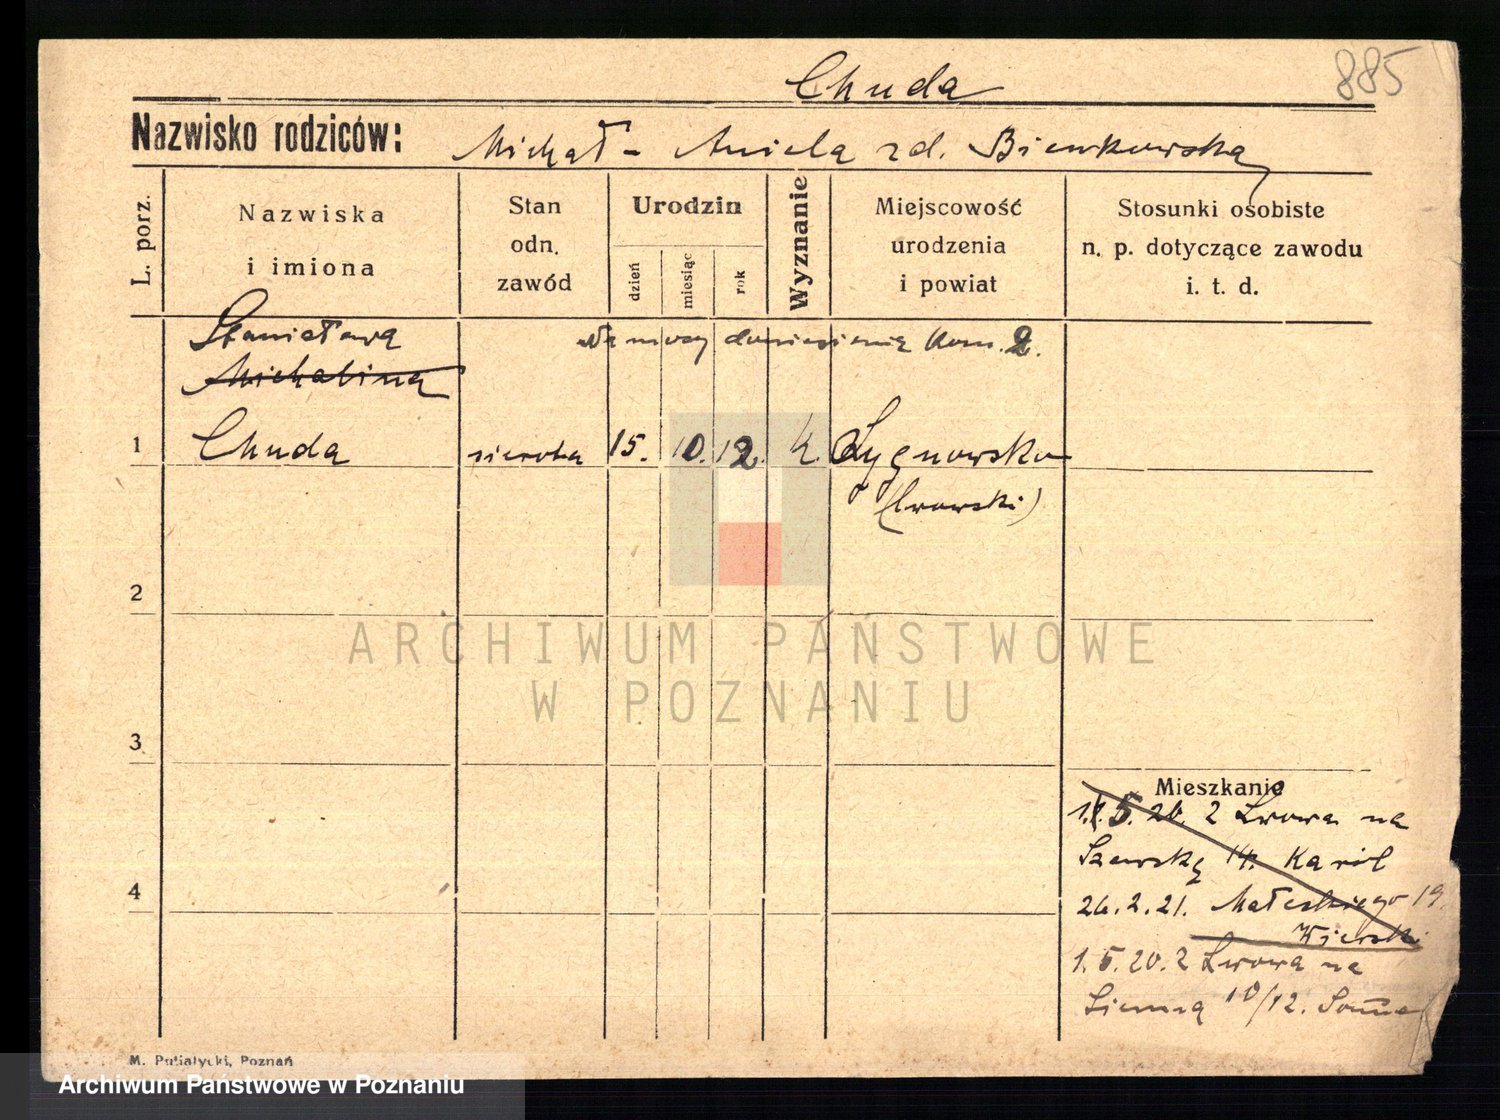 885
Chuda
Nazwisko rodziców: Michał - Aniela zd. Bienkowska
L. porz.
Nazwiska i imiona
Stan odn. zawód
Urodzin
dzień
miesiąc
rok
Wyznanie
Miejscowość urodzenia i powiat
Stosunki osobiste n. p. dotyczące zawodu i. t. d.
Stanisława
Na mocy doniesienia Kom. 2.
Michalina
1 Chuda sierota 15. 10. 12. k.
(lwowski)
2
3
4
Mieszkanie
5. 20. z Lwowa na
Szewską 14. Karol
26.2.21. Małeckiego 19.
1.5.20. z Lwowa na
10/12.
M. Putiatycki, Poznań
ARCHIWUM PAŃSTWOWE
W POZNANIU
Archiwum Państwowe w Poznaniu